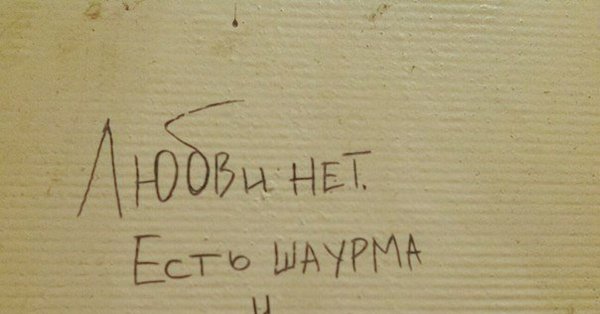 Любви нет.
Есть шаурма
и